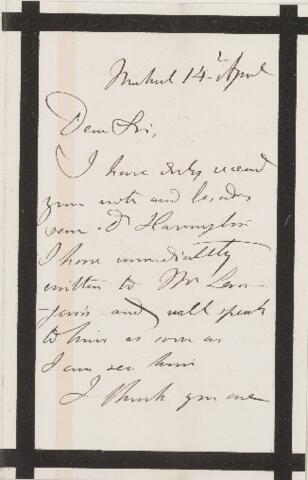 14 April
Dear Sir,
I have duly received
your note and besides
seen Dr Harrington
I have immediately
written to Mr
and will speak
to him as soon as
I can see him
I think you are